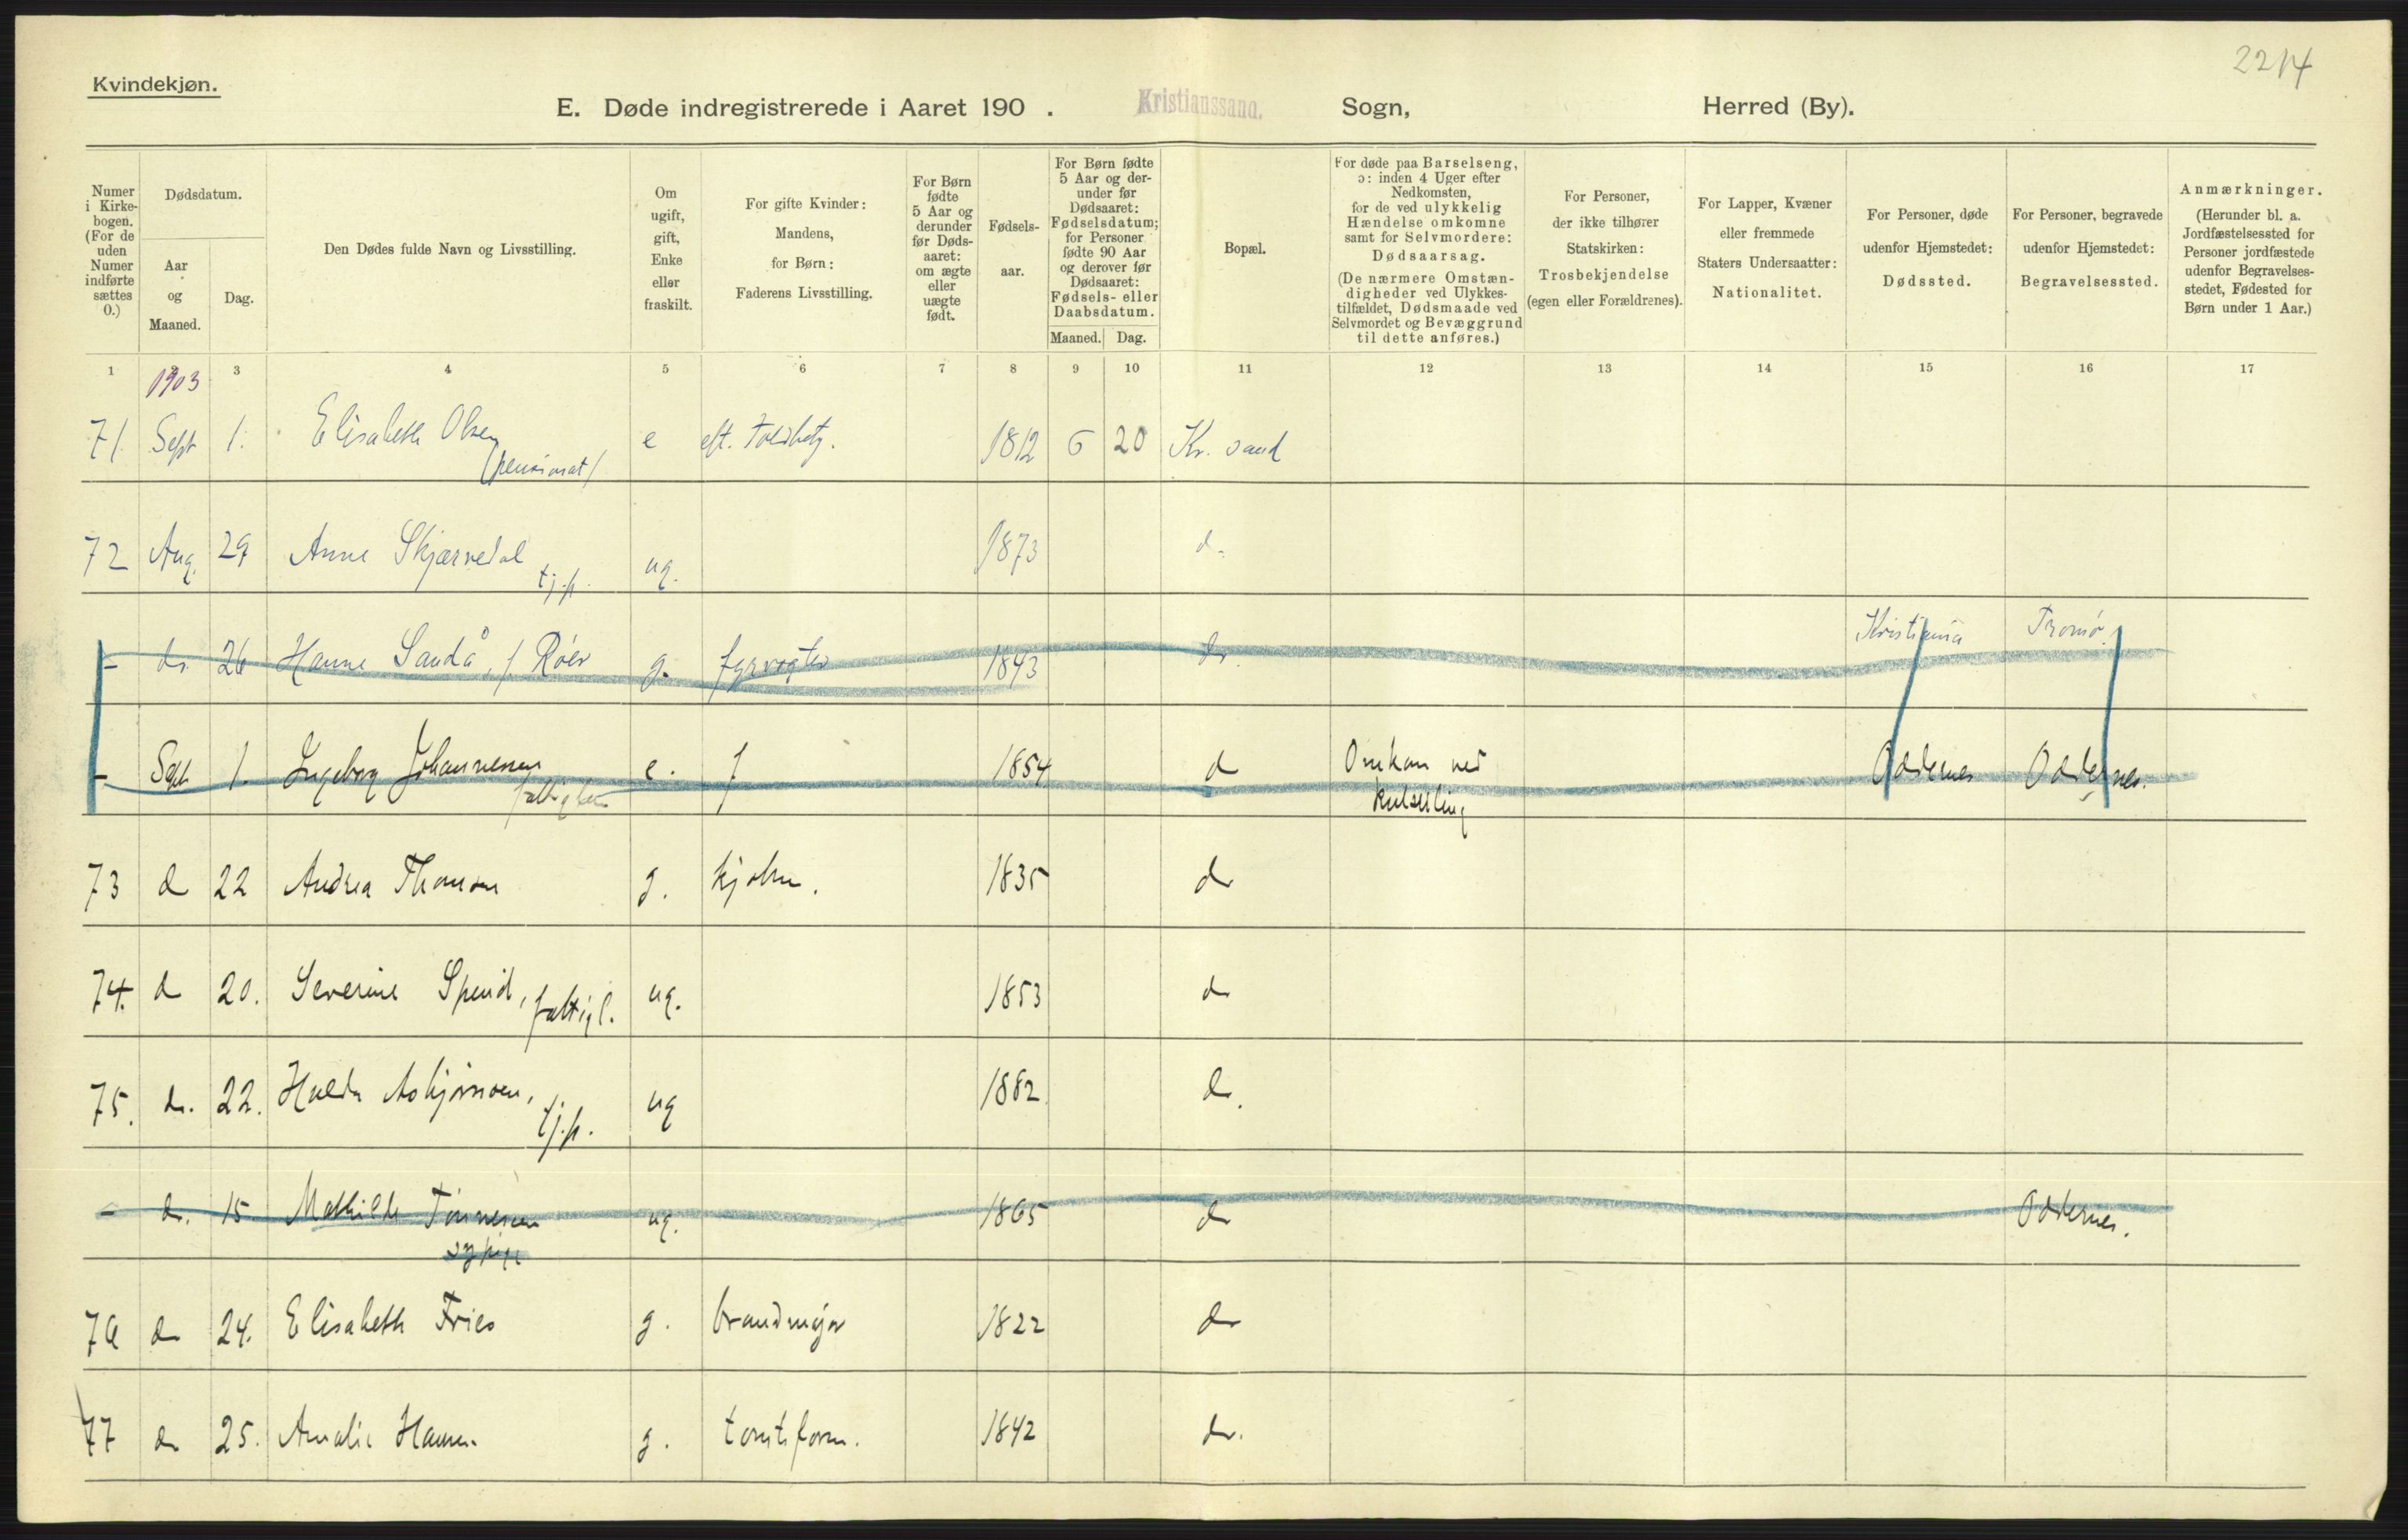 2214
Kvindekjøn.
E. Døde indregistrerede i Aaret 190 . Kristianssand. Sogn, Herred (By).
Numer i Kirke-bogen. (For de uden Numer indførte sættes 0.)
Dødsdatum.
Aar og Maaned.
Dag.
Den Dødes fulde Navn og Livsstilling.
Om ugift, gift, Enke eller fraskilt.
For gifte Kvinder: Mandens, for Børn: Faderens Livsstilling.
For Børn fødte 5 Aar og derunder før Døds-aaret: om ægte eller uægte født.
Fødsels-aar.
For Børn fødte 5 Aar og der-under før Dødsaaret: Fødselsdatum; for Personer fødte 90 Aar og derover før Dødsaaret: Fødsels- eller Daabsdatum.
Maaned. Dag.
Bopæl.
For døde paa Barselseng, ɔ: inden 4 Uger efter Nedkomsten, for de ved ulykkelig Hændelse omkomne samt for Selvmordere: Dødsaarsag. (De nærmere Omstæn-digheder ved Ulykkes-tilfældet, Dødsmaade ved Selvmordet og Bevæggrund til dette anføres.)
For Personer, der ikke tilhører Statskirken: Trosbekjendelse (egen eller Forældrenes).
For Lapper, Kvæner eller fremmede Staters Undersaatter: Nationalitet.
For Personer, døde udenfor Hjemstedet: Dødssted.
For Personer, begravede udenfor Hjemstedet: Begravelsessted.
Anmærkninger. (Herunder bl. a. Jordfæstelsessted for Personer jordfæstede udenfor Begravelses-stedet, Fødested for Børn under 1 Aar.)
1 3 4 5 6 7 8 9 10 11 12 13 14 15 16 17
1903
71 Sept 1. Elisabeth Olsen e eft. toldbetj. 1812 6 20 Kr. sand
(pensionat)
72 Aug. 29 Anne Skjærvedal ug. 1873 d.
tj.p.
- do. 26 Hanne Sandå, f. Röer g. fyrvogter 1843 do. Kristiania Tromö.
- Sept 1. Ingeborg Johannessen e. f 1854 d Omkom ved Oddernes Oddernes.
73 d 22 Andrea Thomsen g. 1835 do
74. d 20. Severine Spend, fattigl. ug. 1853 do
75. do. 22. Hulda Asbjørnsen, ug 1882 d.
tj.p.
- d. 15 Mathilde Tönnesen ug. 1865 d Oddernes.
sypige
76 do 24. Elisabeth Fries g. brandmajor 1822 do
77 do 25. Amalie Hansen g. 1842 do.